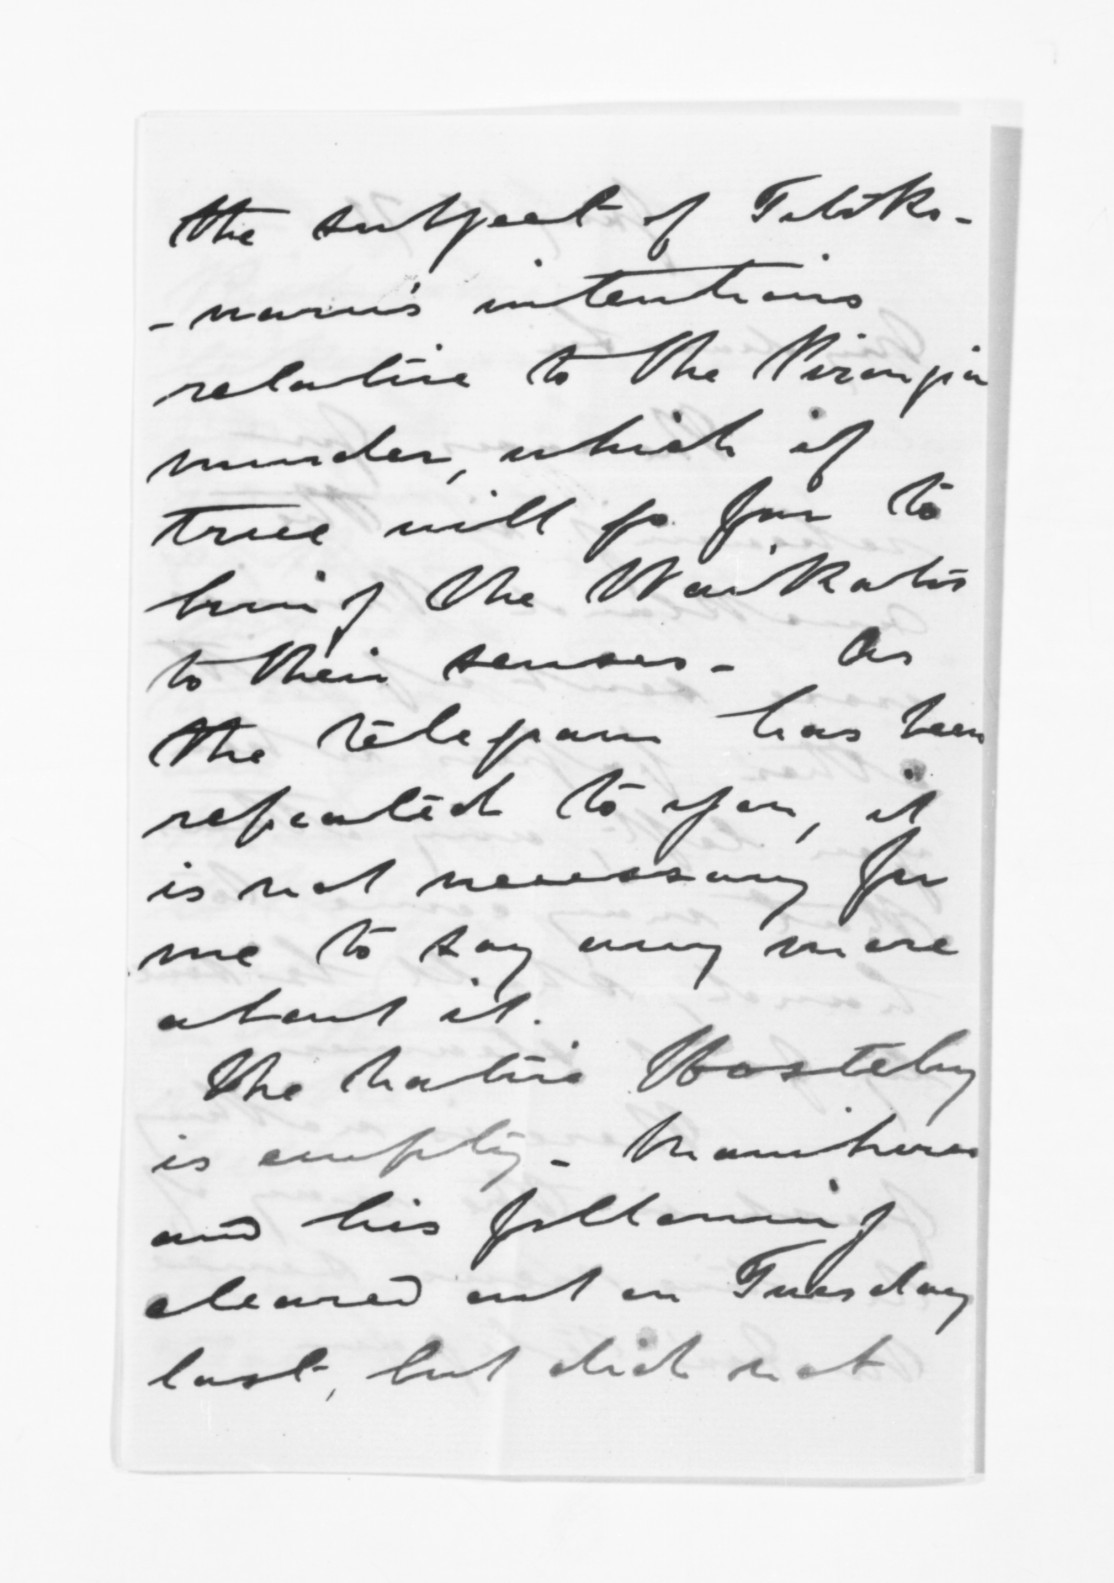 the subject of Titoko-
-waru's intentions
relative to the Pirongia
murder, which if
true will go far to
bring the Waikatos
to their senses - As
the telegram has been
repeated to you, it
is not necessary for
me to say any more
about it.
The native Hostelry
is empty -
and his following
cleared out on Tuesday
last, but did not